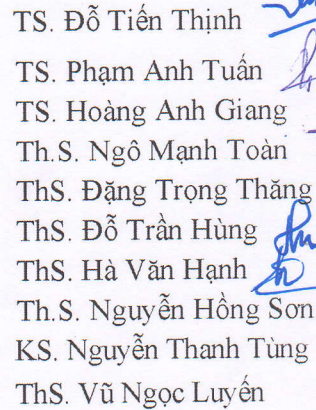 TS. Đỗ Tiến Thịnh
TS. Phạm Anh Tuấn
TS. Hoàng Anh Giang
Th.S. Ngô Mạnh Toàn
ThS. Đặng Trọng Thăng
ThS. Đỗ Trần Hùng
ThS. Hà Văn Hạnh
Th.S. Nguyễn Hồng Sơn
KS. Nguyễn Thanh Tùng
ThS. Vũ Ngọc Luyến